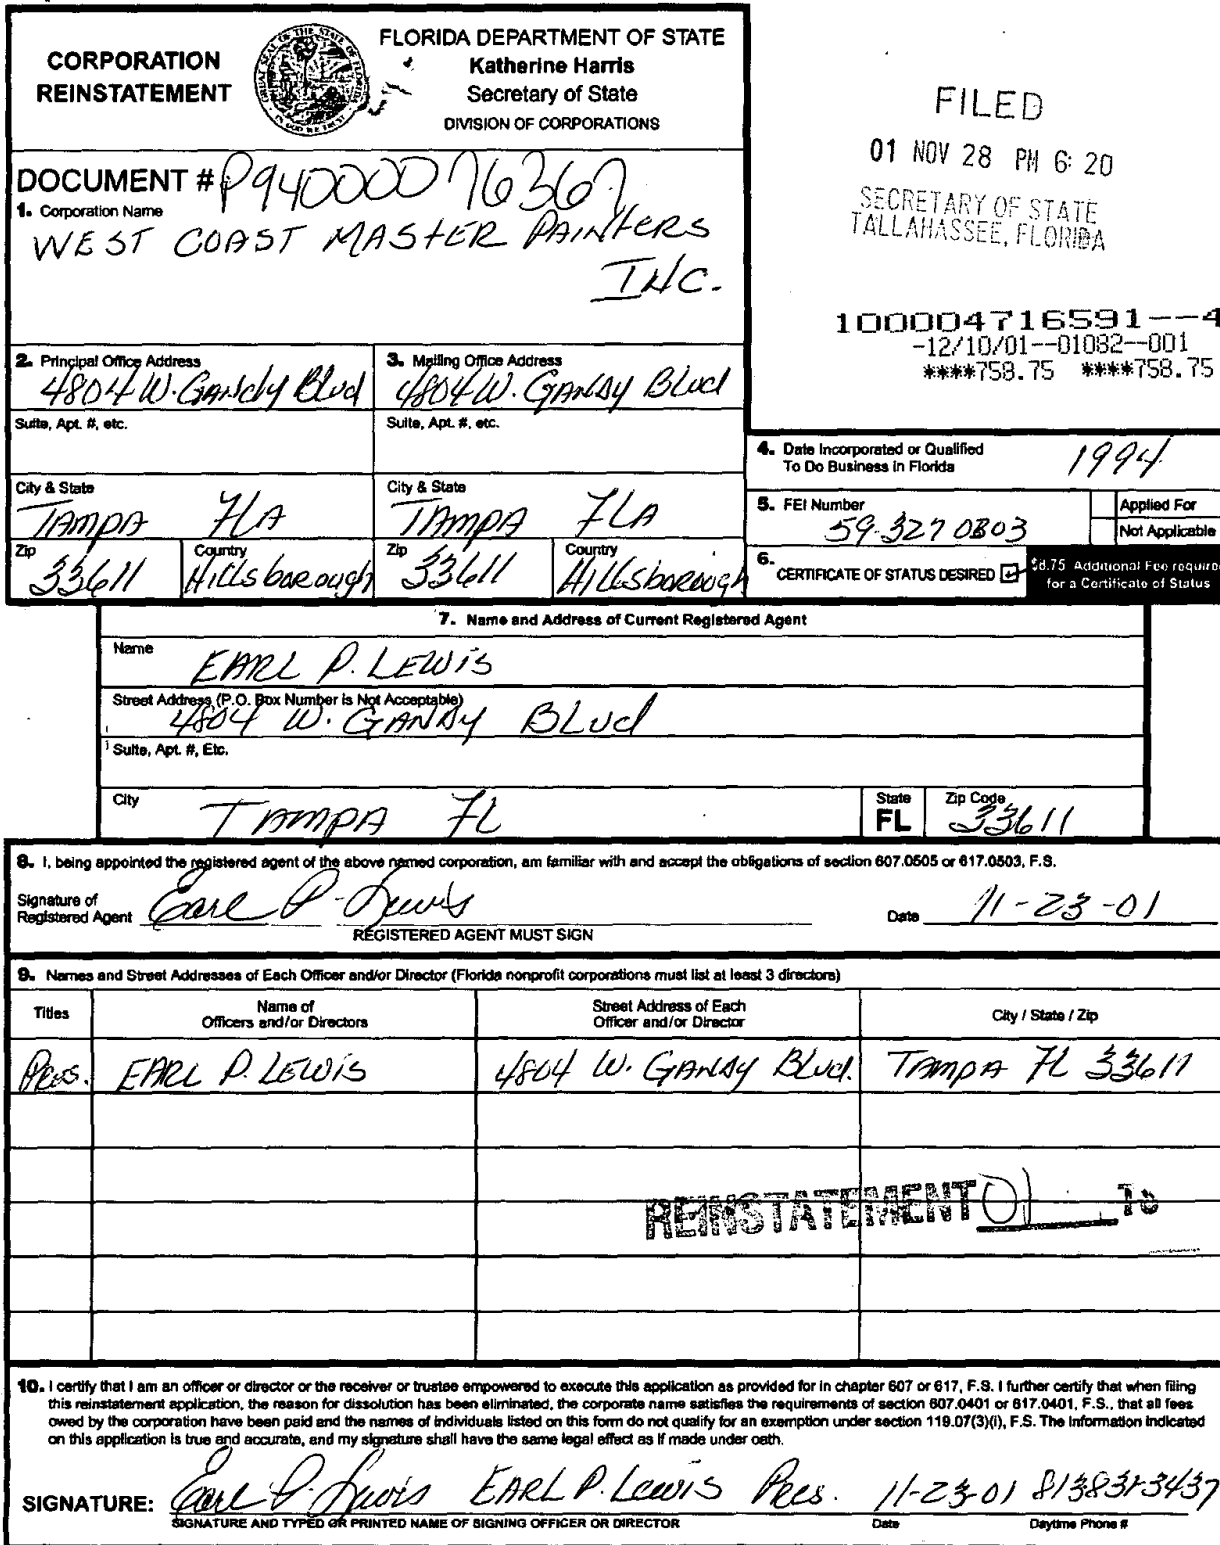 CORPORATION
REINSTATEMENT
FLORIDA DEPARTMENT OF STATE
Katherine Harris
Secretary of State
DIVISION OF CORPORATIONS
FILED
01 NOV 28 PM 6:20
SECRETARY OF STATE
TALLAHASSEE, FLORIDA
DOCUMENT # P94000076367
1. Corporation Name
WEST COAST MASTER PAINTERS
INC.
100004716591--4
-12/10/01--01082--001
****758.75 ****758.75
2. Principal Office Address
4804 W. GANDY Blvd
3. Mailing Office Address
4804 W. GANDY Blvd
Suite, Apt. #, etc.
Suite, Apt. #, etc.
4. Date Incorporated or Qualified
To Do Business in Florida
1994
City & State
TAMPA FLA
City & State
TAMPA FLA
5. FEI Number
59-3270803
Applied For
Not Applicable
Zip
33611
Country
Hillsborough
Zip
33611
Country
Hillsborough
6. CERTIFICATE OF STATUS DESIRED
$8.75 Additional Fee require
for a Certificate of Status
7. Name and Address of Current Registered Agent
Name
EARL P. LEWIS
Street Address (P.O. Box Number is Not Acceptable)
4804 W. GANDY BLvd
Suite, Apt. #, Etc.
City
TAMPA FL
State
FL
Zip Code
33611
8. I, being appointed the registered agent of the above named corporation, am familiar with and accept the obligations of section 607.0505 or 617.0503, F.S.
Signature of
Registered Agent Earl P. Lewis
Date 11-23-01
REGISTERED AGENT MUST SIGN
9. Names and Street Addresses of Each Officer and/or Director (Florida nonprofit corporations must list at least 3 directors)
Titles
Name of
Officers and/or Directors
Street Address of Each
Officer and/or Director
City / State / Zip
Pres. EARL P. LEWIS 4804 W. GANDY BLvd. TAMPA FL 33611
REINSTATEMENT 01
10. I certify that I am an officer or director or the receiver or trustee empowered to execute this application as provided for in chapter 607 or 617, F.S. I further certify that when filing
this reinstatement application, the reason for dissolution has been eliminated, the corporate name satisfies the requirements of section 607.0401 or 617.0401, F.S., that all fees
owed by the corporation have been paid and the names of individuals listed on this form do not qualify for an exemption under section 119.07(3)(i), F.S. The information indicated
on this application is true and accurate, and my signature shall have the same legal effect as if made under oath.
SIGNATURE: Earl P. Lewis EARL P. LEWIS Pres. 11-23-01
SIGNATURE AND TYPED OR PRINTED NAME OF SIGNING OFFICER OR DIRECTOR
Date
Daytime Phone #